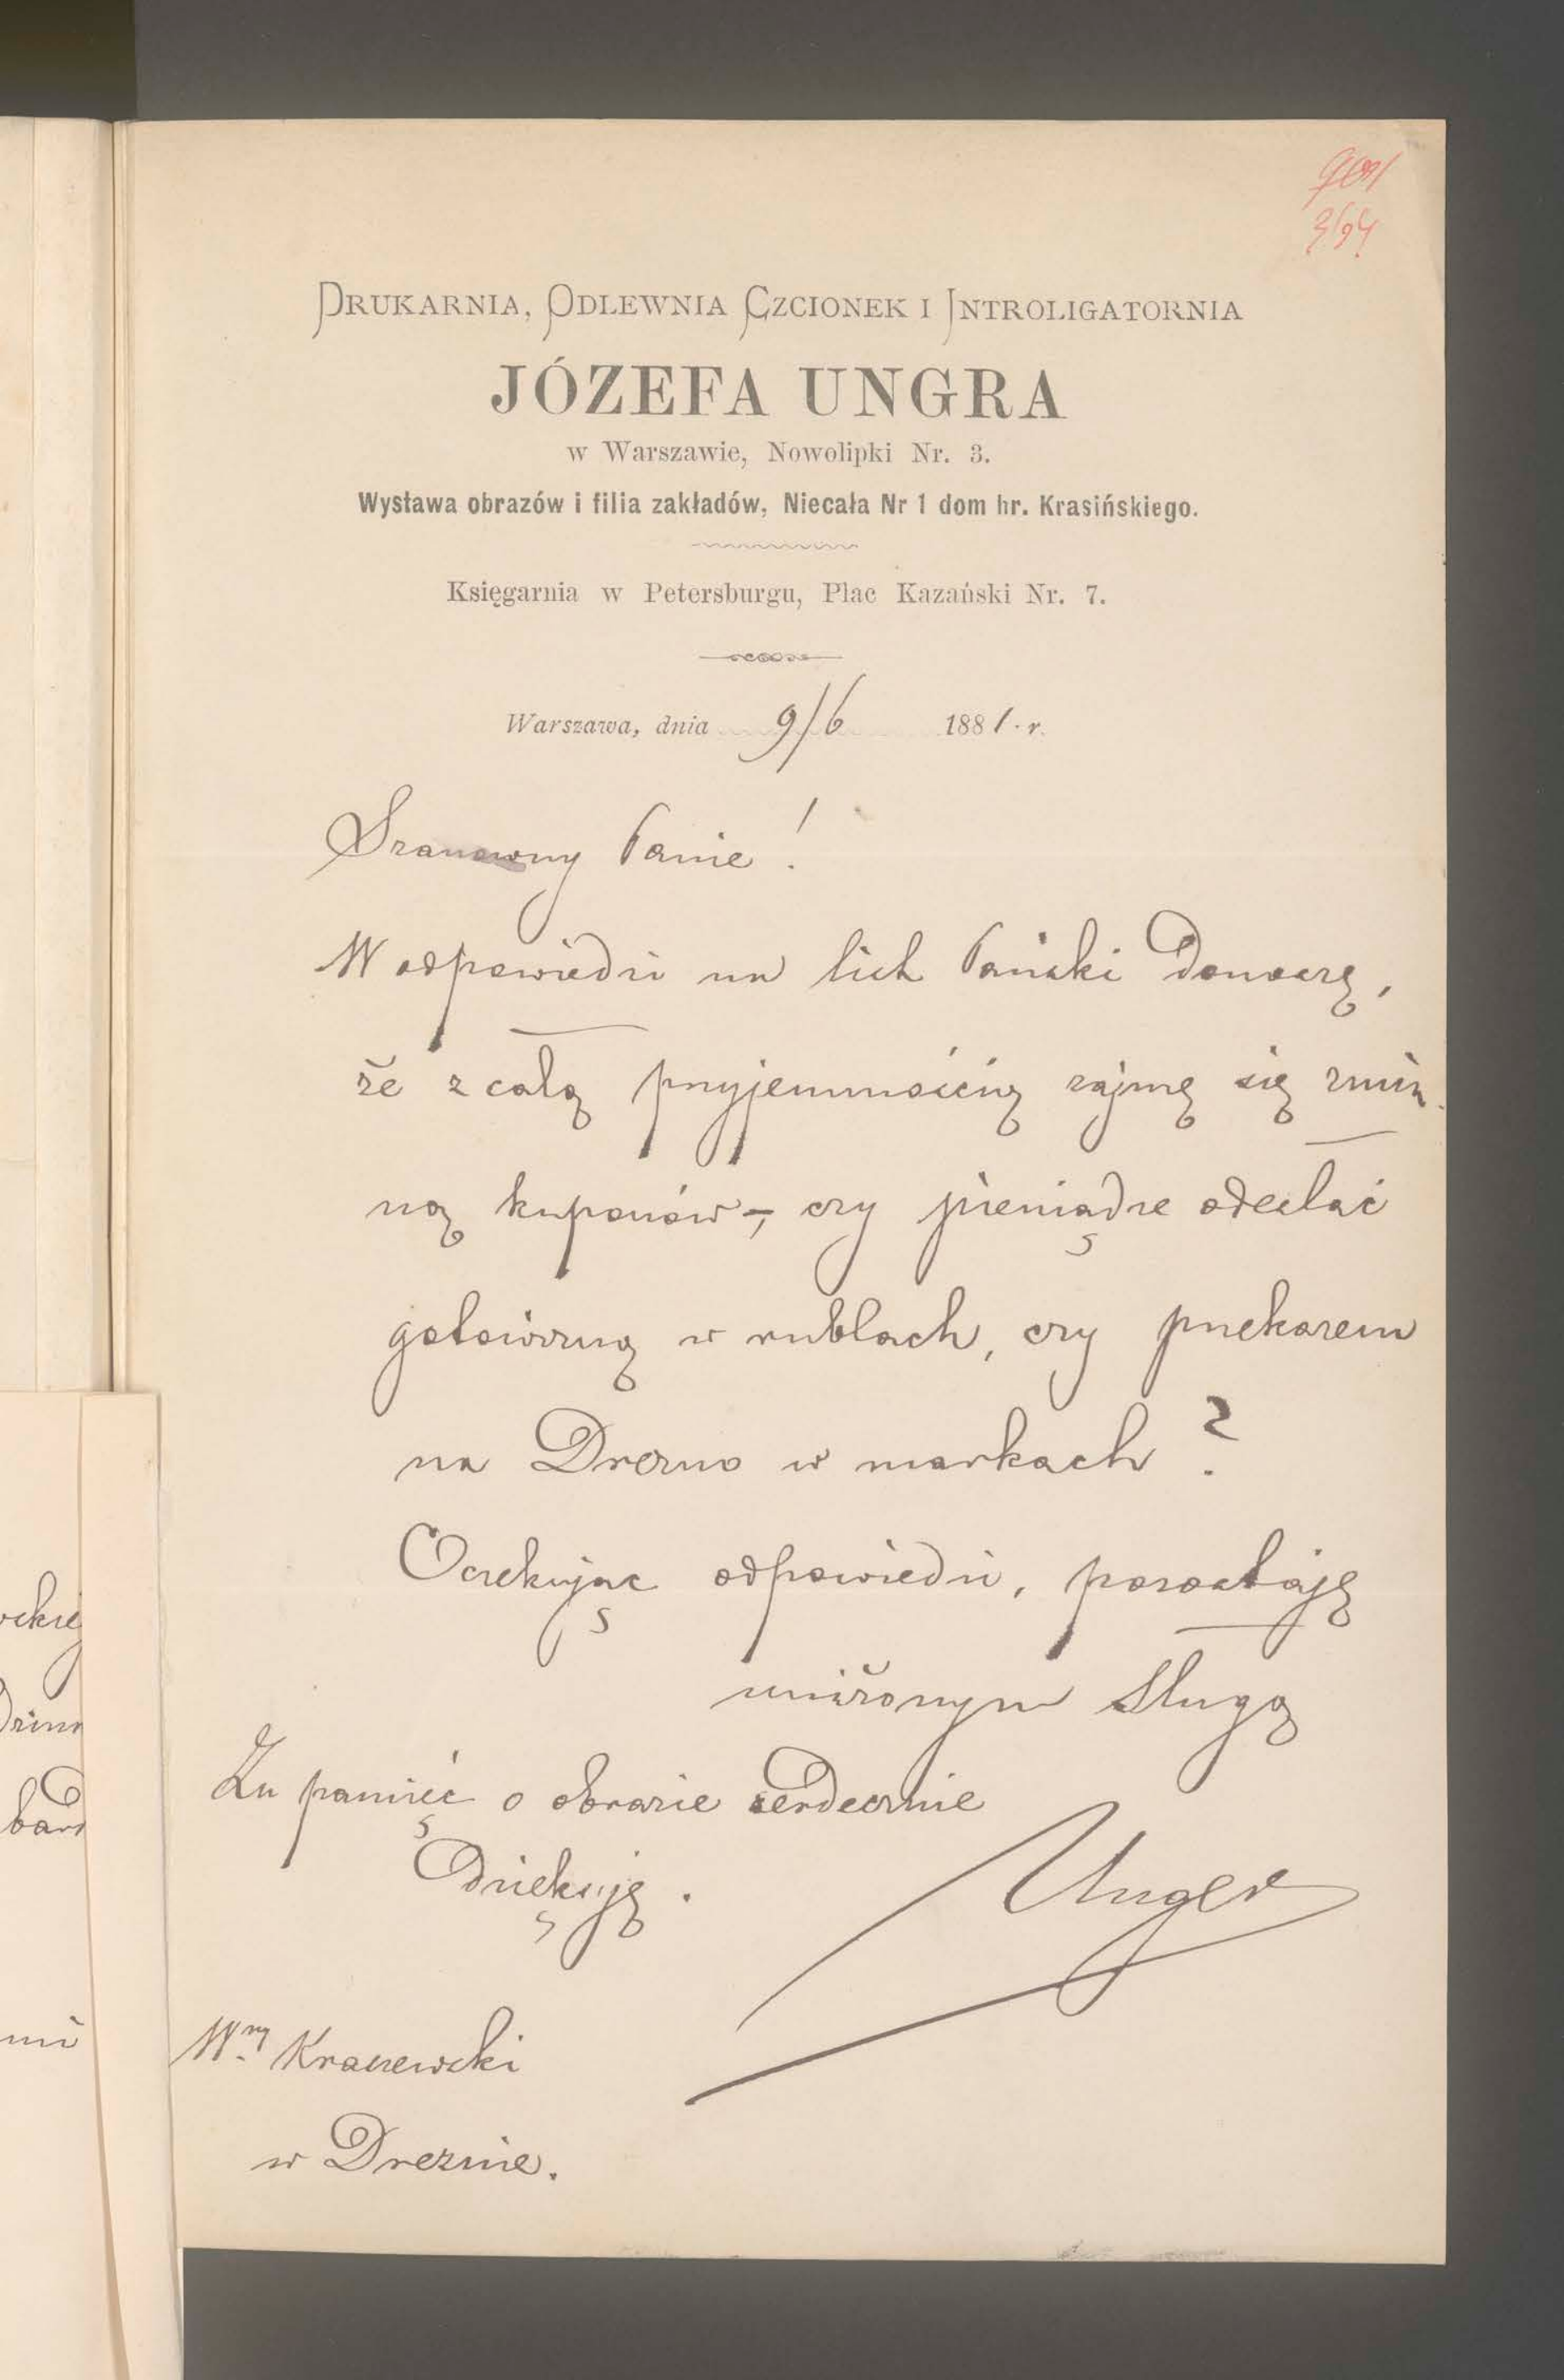 DRUKARNIA, ODLEWNIA CZCIONEK I INTROLIGATORNIA
JÓZEFA UNGRA
w Warszawie, Nowolipki Nr. 3.
Wystawa obrazów i filia zakładów, Niecała Nr 1 dom hr. Krasińskiego.
Księgarnia w Petersburgu, Plac Kazański Nr. 7.
Warszawa, dnia 9/6 1881 r.
Szanowny Panie!
W odpowiedzi na list Pański donoszę,
że z całą przyjemnością zajmę się zmia-
ną kuponów –, czy pieniądze odesłać
gotowizną w rublach, czy przekazem
na Drezno w markach?
Oczekując odpowiedzi, pozostaję
uniżonym sługą
Za pamięć o obrazie serdecznie
dziękuję.
Unger
Wny Kraszewski
w Dreznie.